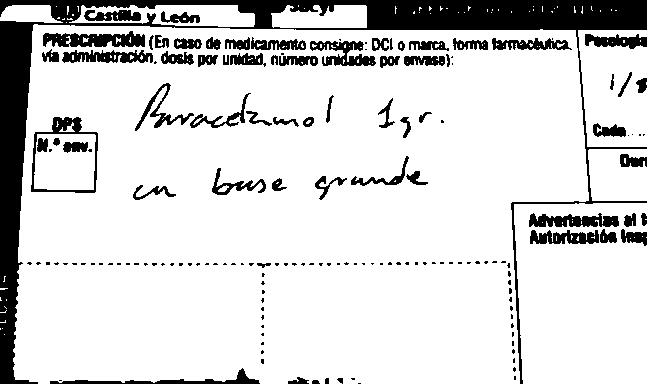 Castilla y León
Sacyl
PRESCRIPCIÓN (En caso de medicamento consigne: DCI o marca, forma farmacéutica,
vía administración, dosis por unidad, número unidades por envase):
Posología
1/8
Cada
DPS
N.º env.
Paracetamol 1gr.
en base grande
Dur
Advertencias al f
Autorización Insp